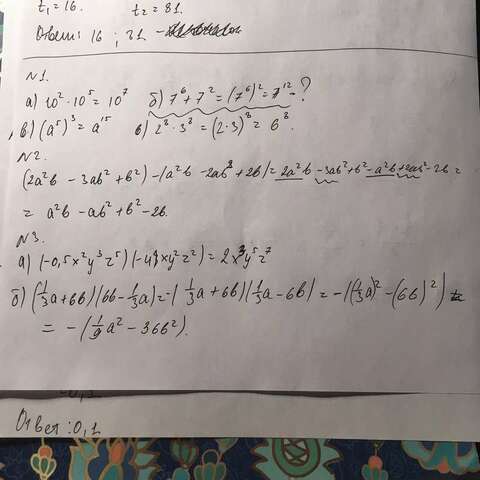 t₁=16. t₂=81.
Ответ: 16 ; 81
N1.
а) 10²·10⁵=10⁷ б) 7⁶+7²=(7⁶)²=7¹² - ?
в) (a⁵)³=a¹⁵ в) 2⁸·3⁸=(2·3)⁸=6⁸.
N2.
(2a²b - 3ab²+b²)-(a²b-2ab²+2b)=2a²b-3ab²+b²-a²b+2ab²-2b=
= a²b-ab²+b²-2b.
N3.
а) (-0,5x²y³z⁵)(-4xy²z²)=2x³y⁵z⁷
б) (⅓a+6b)(6b-⅓a)=-(⅓a+6b)(⅓a-6b)=-((⅓a)²-(6b)²)
= -(⅑a²-36b²).
Ответ: 0,1